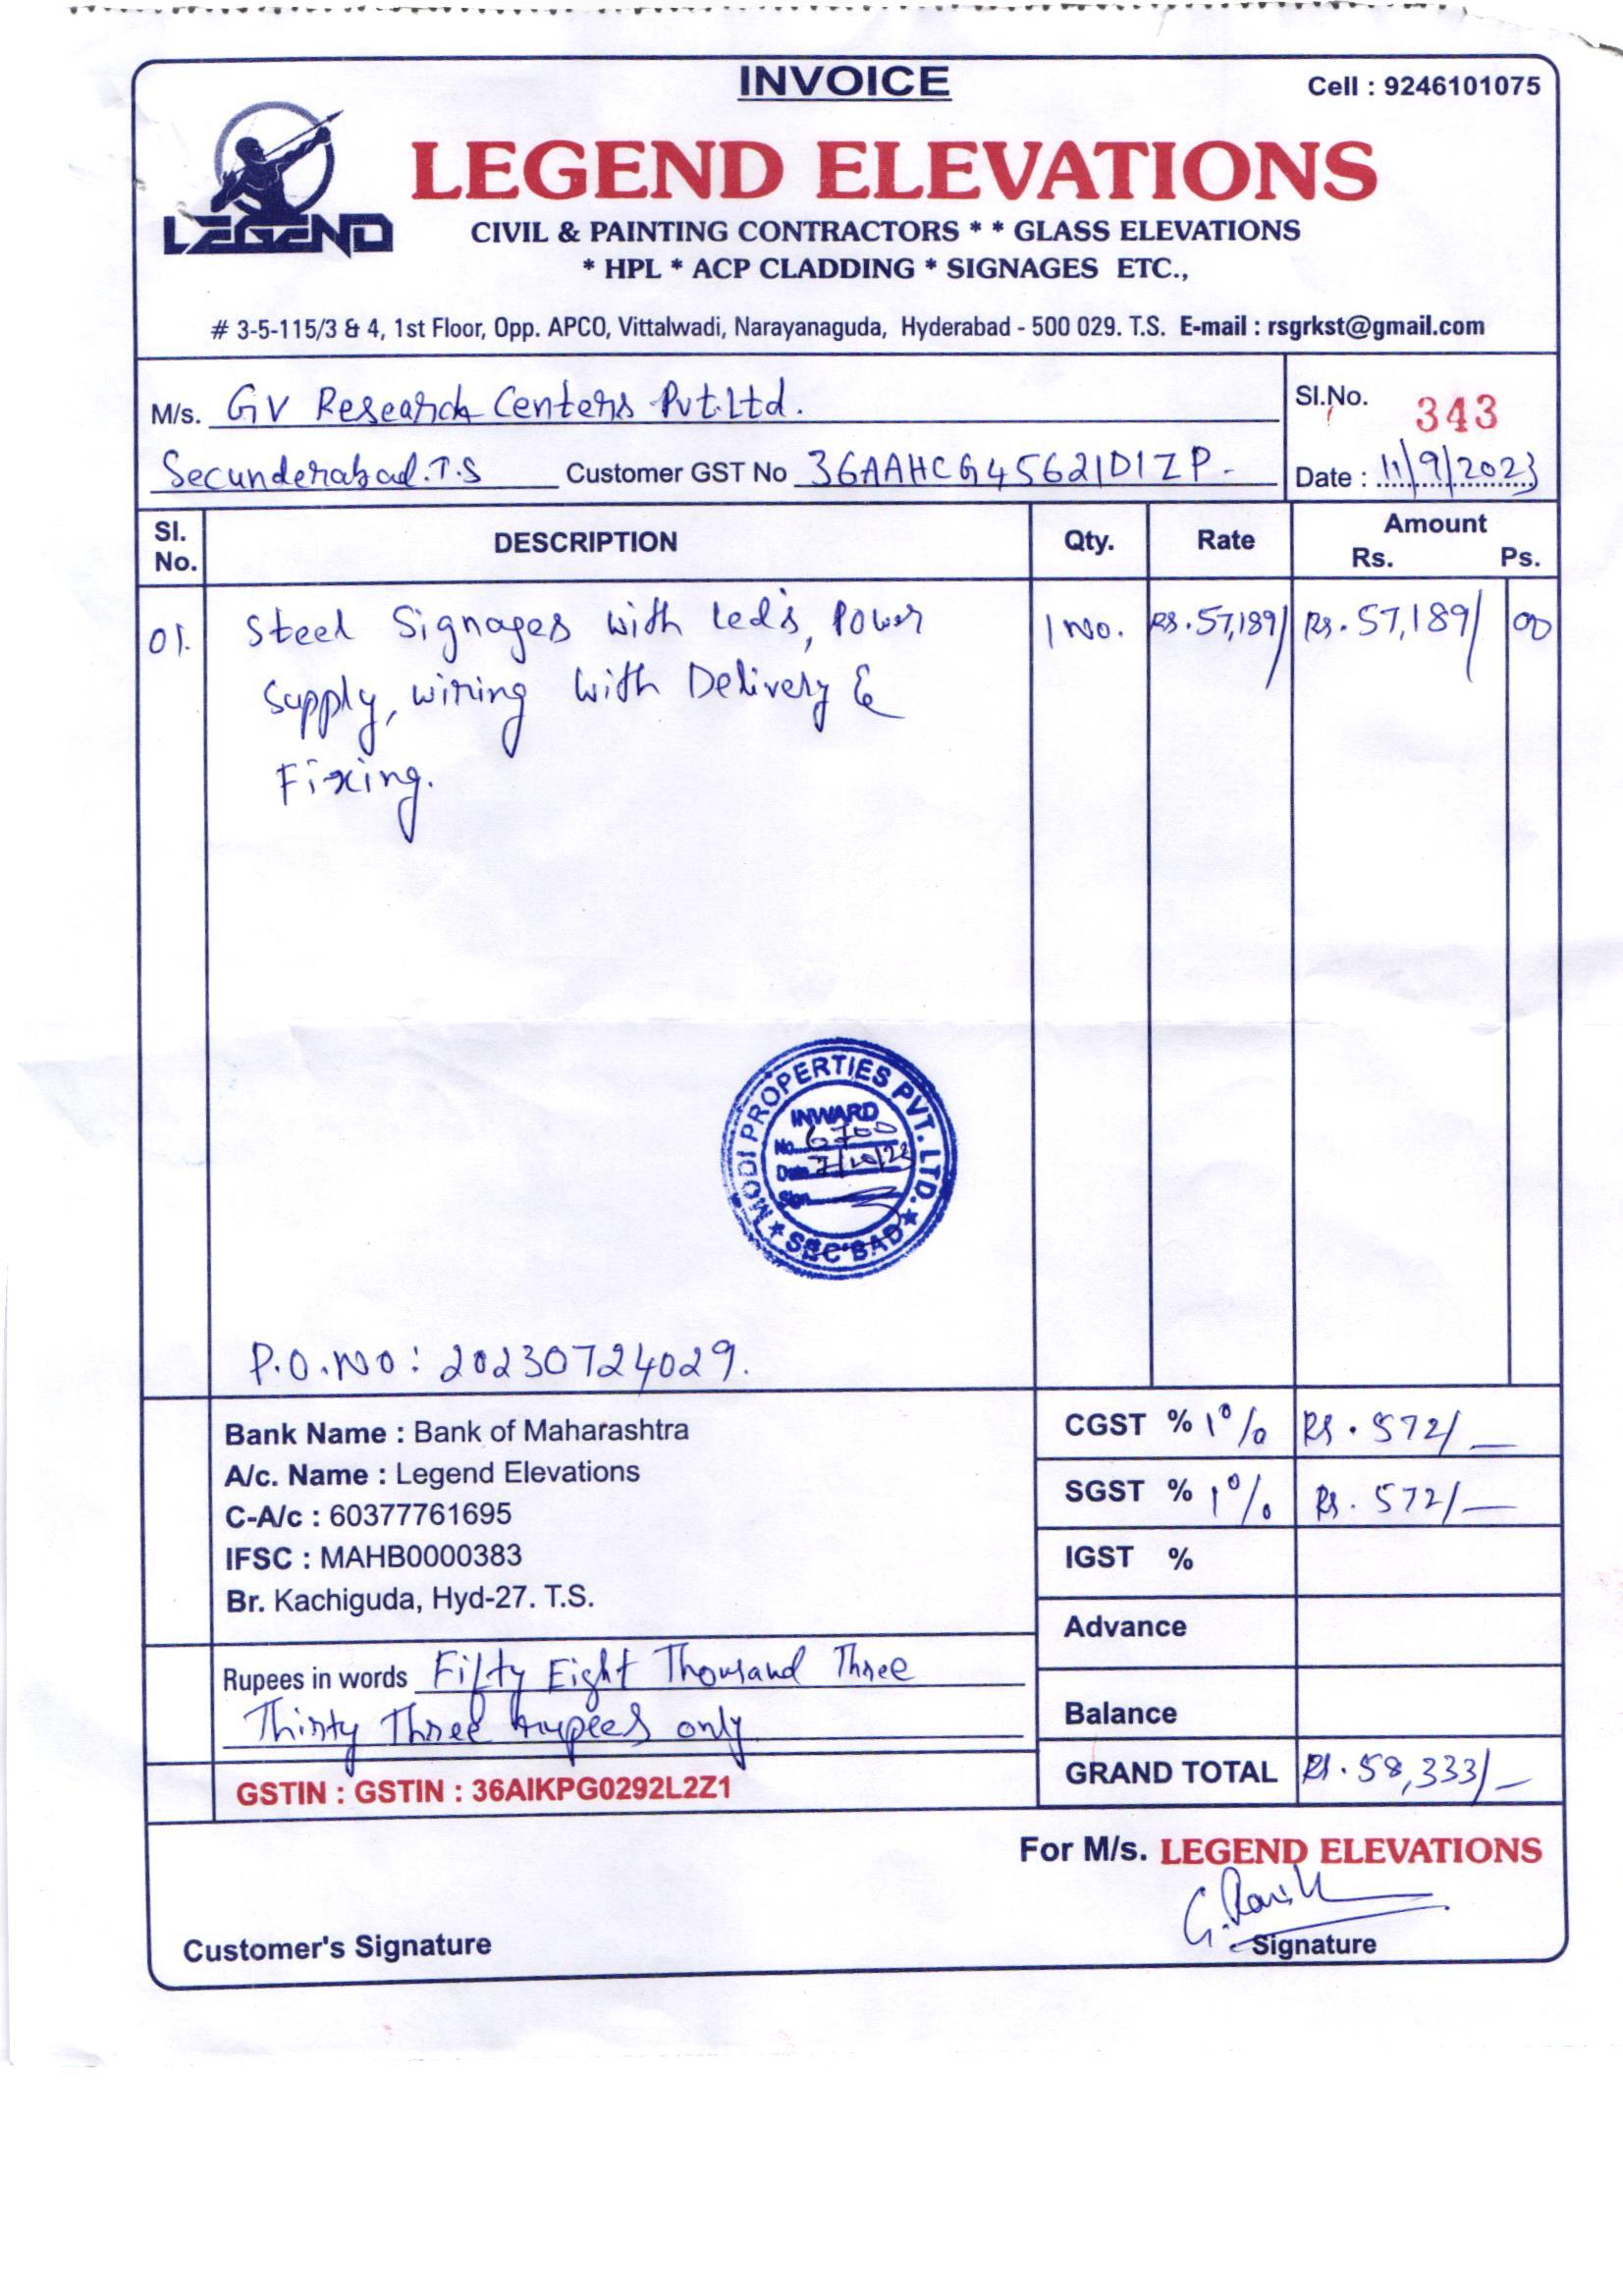 INVOICE
Cell : 9246101075
LEGEND
LEGEND ELEVATIONS
CIVIL & PAINTING CONTRACTORS * * GLASS ELEVATIONS
* HPL * ACP CLADDING * SIGNAGES ETC.,
# 3-5-115/3 & 4, 1st Floor, Opp. APCO, Vittalwadi, Narayanaguda, Hyderabad - 500 029. T.S. E-mail : rsgrkst@gmail.com
M/s. GV Research Centers Pvt.Ltd.
Sl.No. 343
Secunderabad.T.S Customer GST No 36AAHCG45621D1ZP-
Date : 11/9/2023
Sl. No. DESCRIPTION Qty. Rate Amount Rs. Ps.
01. Steel Signages with Led's, Power 1 No. Rs.57,189/ Rs.57,189/ 00
Supply, wiring with Delivery &
Fixing.
MODI PROPERTIES PVT. LTD.
INWARD
No. 6700
Date 7/10/23
Sign
★ SEC'BAD ★
P.O.NO: 20230724029.
Bank Name : Bank of Maharashtra
A/c. Name : Legend Elevations
C-A/c : 60377761695
IFSC : MAHB0000383
Br. Kachiguda, Hyd-27. T.S.
CGST % 1% Rs. 572/—
SGST % 1% Rs. 572/—
IGST %
Advance
Balance
GRAND TOTAL Rs. 58,333/—
Rupees in words Fifty Eight Thousand Three
Thirty Three Rupees only
GSTIN : GSTIN : 36AIKPG0292L2Z1
For M/s. LEGEND ELEVATIONS
Customer's Signature
Signature